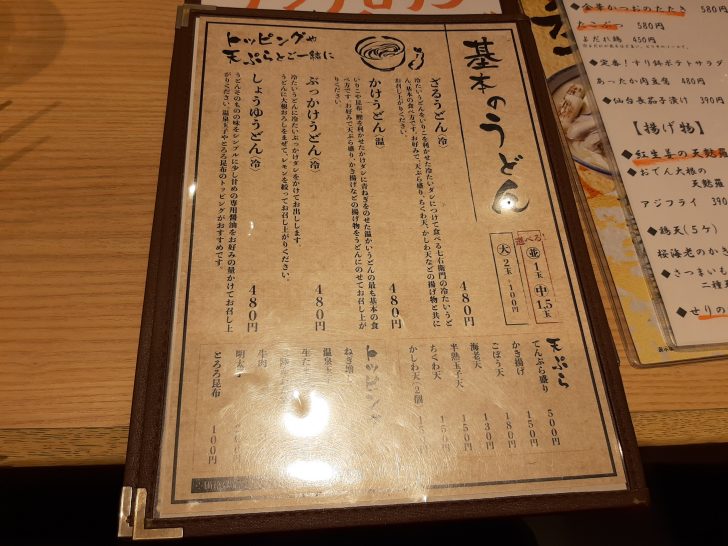 基本のうどん
トッピングや
天ぷらとご一緒に
選べる
並 1玉
中 1.5玉
大 2玉+100円
ざるうどん(冷) 480円
冷たいうどんをいりこを利かせた冷たいダシにつけて食べる七右衛門の冷たいうど
ん基本の食べ方です。お好みで、天ぷら盛り、ちくわ天、かしわ天などの揚げ物と共に
お召し上がりください。
かけうどん(温) 480円
いりこや昆布、鰹を利かせたかけダシに青ねぎをのせた温かいうどんの最も基本の食
べ方です。お好みで天ぷら盛り、かき揚げなどの揚げ物をうどんにのせてお召し上が
りください。
ぶっかけうどん(冷) 480円
冷たいうどんに冷たいぶっかけダシをかけてお出しします。
うどんに大根おろしをまぜて、レモンを絞ってお召し上がりください。
しょうゆうどん(冷) 480円
うどんそのものの味をシンプルに少し甘めの専用醤油をお好みの量かけてお召し上
がりください。温泉玉子やとろろ昆布のトッピングがおすすめです。
天ぷら
てんぷら盛り 500円
かき揚げ 150円
ごぼう天 180円
海老天 130円
半熟玉子天 150円
ちくわ天
かしわ天(2個)
トッピング
ねぎ増し
温泉玉子
牛肉
明太子
とろろ昆布 100円
金華かつおのたたき 580円
たこぶつ 580円
よだれ鶏 450円
定番!すり鉢ポテトサラダ
あったか肉豆腐 480円
仙台長茄子漬け 390円
【揚げ物】
紅生姜の天麩羅
おでん大根の
天麩羅
アジフライ 390
鶏天(5ケ)
桜海老のかき
さつまいも
二種
せりの